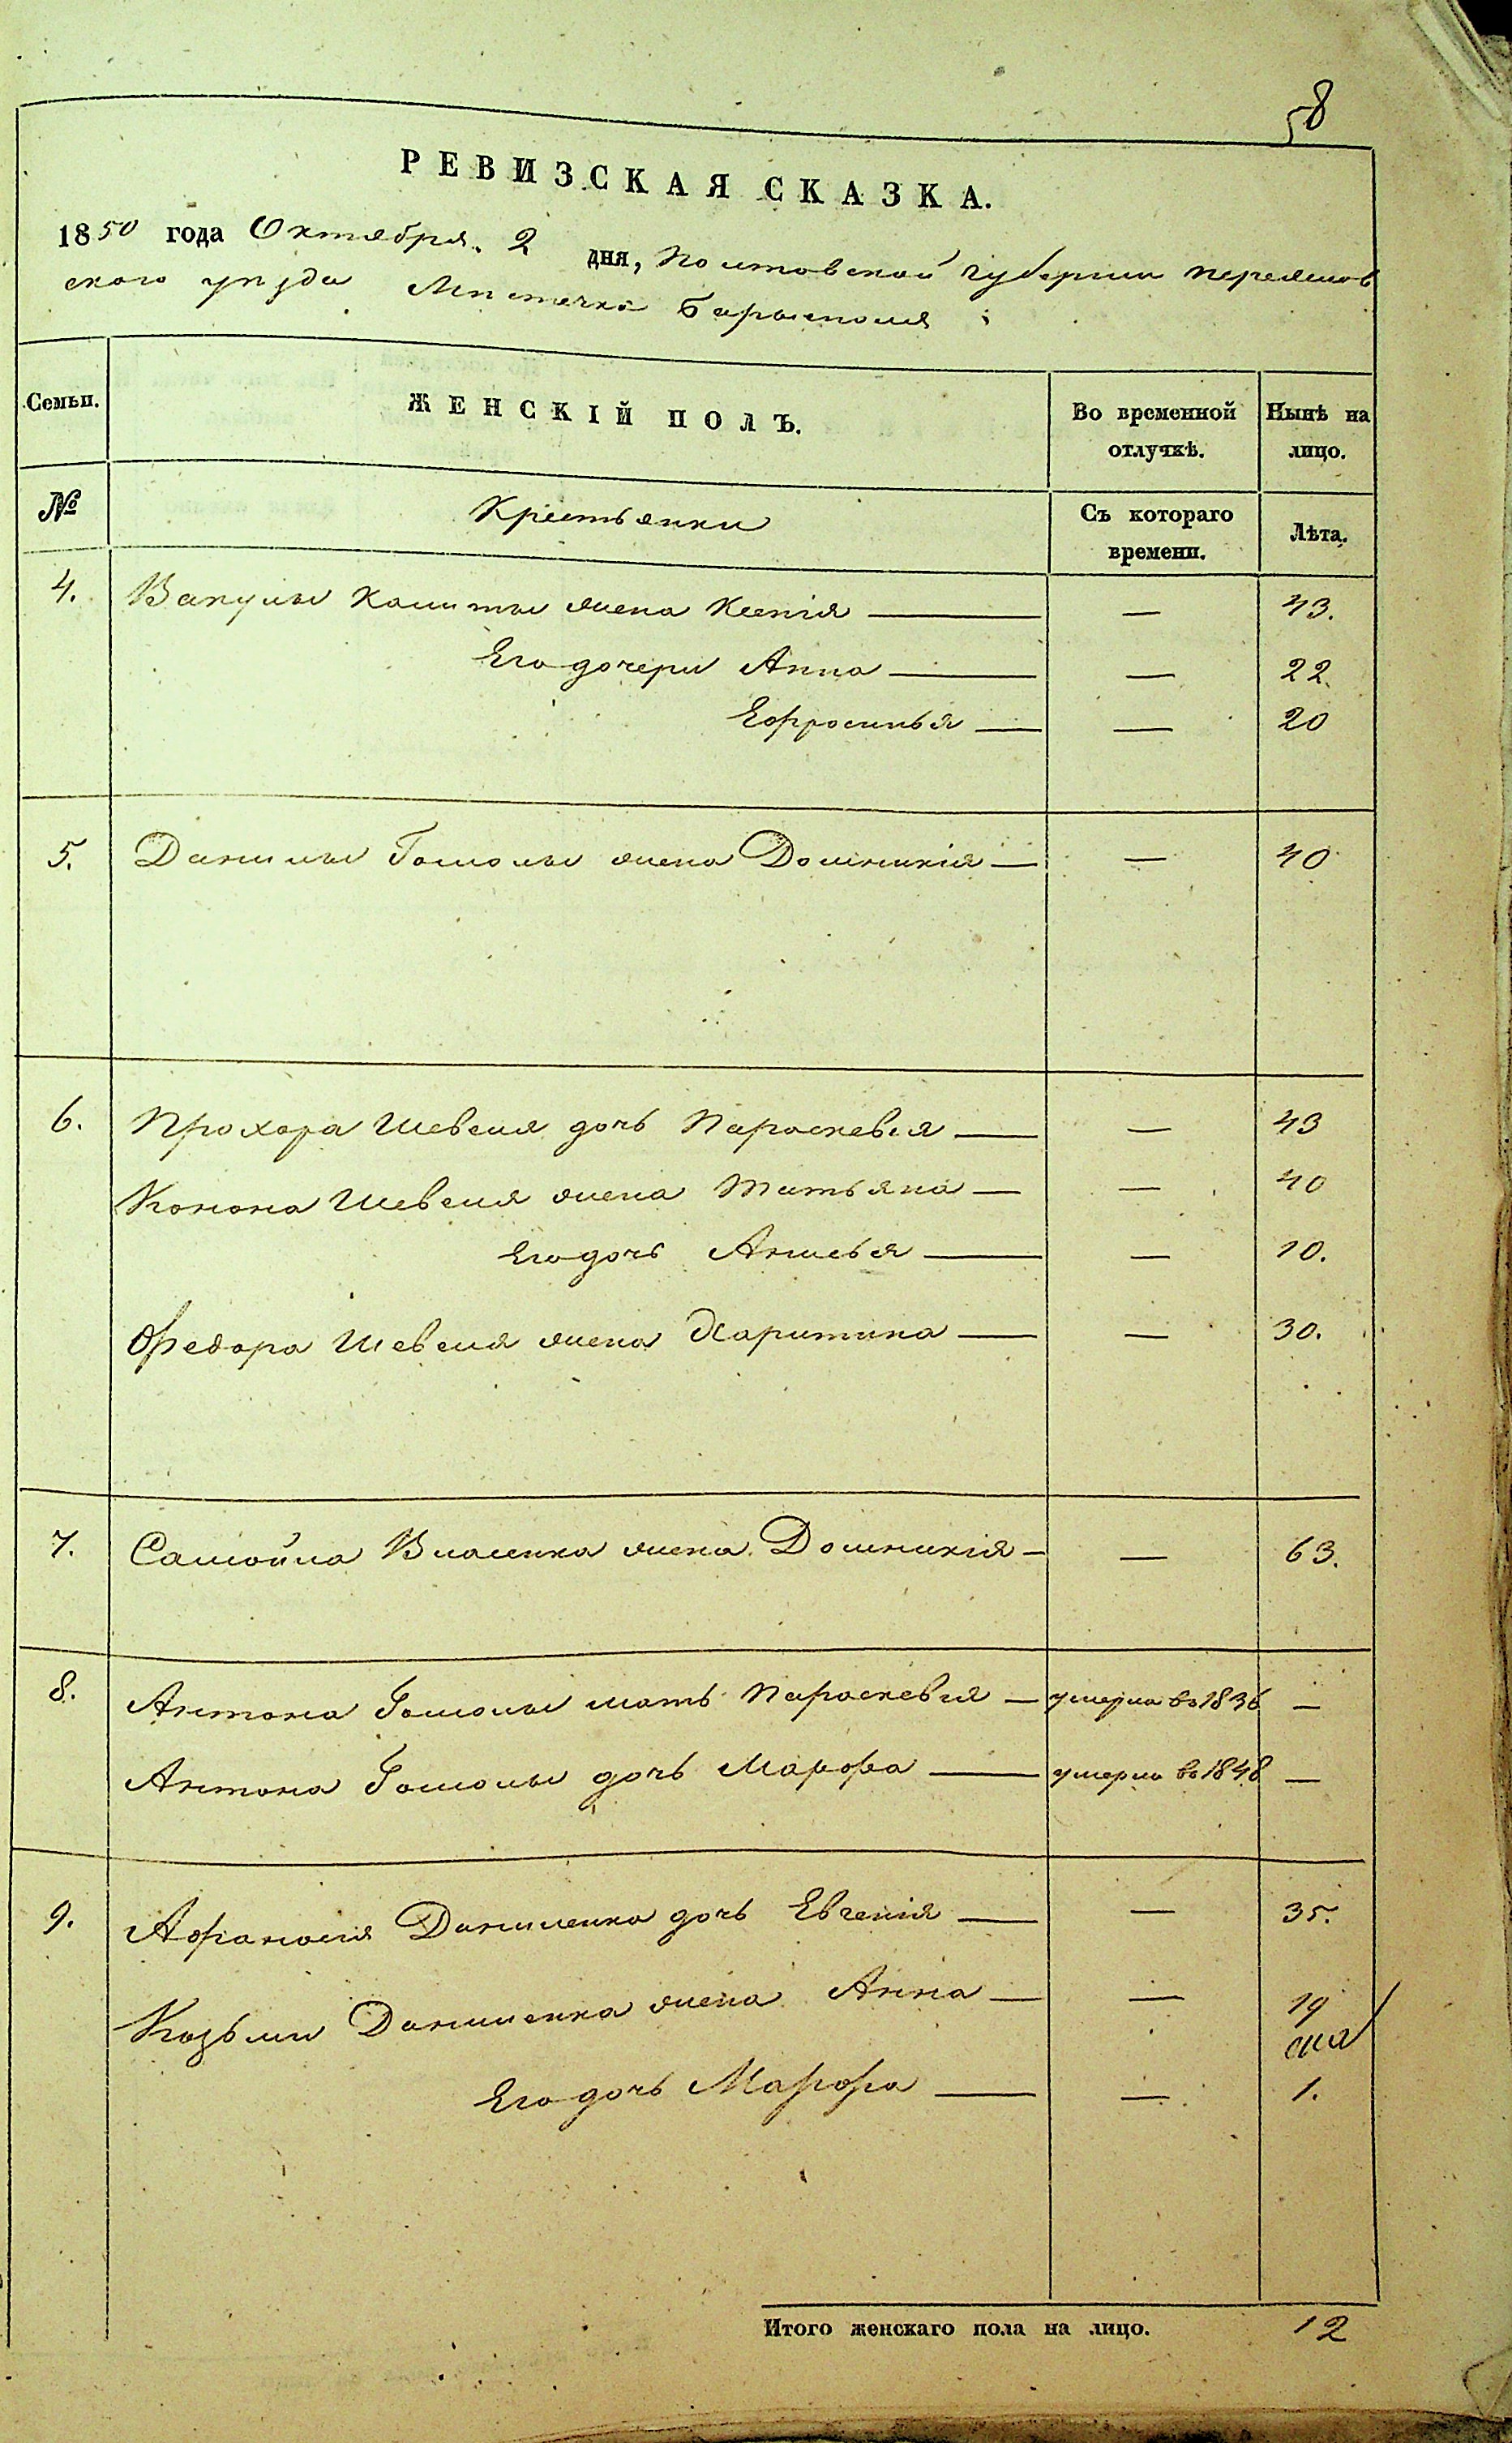 58
РЕВИЗСКАЯ СКАЗКА.
1850 года Октября 2 дня, Полтавской губернии Переяслов
ского уѣзда Мѣстечка Барысполя
Семьи. ЖЕНСКІЙ ПОЛЪ. Во временной отлучкѣ. Нынѣ на лицо.
№ Крестьянки Съ котораго времени. Лѣта.
4. Вакулы жена Ксенія — — 43.
Его дочери Анна — — 22.
Ефросинья — — 20
5. Данилы Гамолы жена Домникія — — 40
6. Прохора Шевеля дочь Параскевія — — 43
Конона Шевеля жена Татьяна — — 40
Его дочь — — 10.
Федора Шевеля жена Харитина — — 30.
7. Самойла Власенка жена Домникія — — 63.
8. Антона Гамолы мать Параскевія — умерла въ 1836 —
Антона Гамолы дочь Марфа — умерла въ 1848 —
9. Афанасія Даниленка дочь Евгенія — — 35.
Козьми Даниленка жена Анна — — 19
Его дочь Марфа — — 1.
Итого женскаго пола на лицо. 12